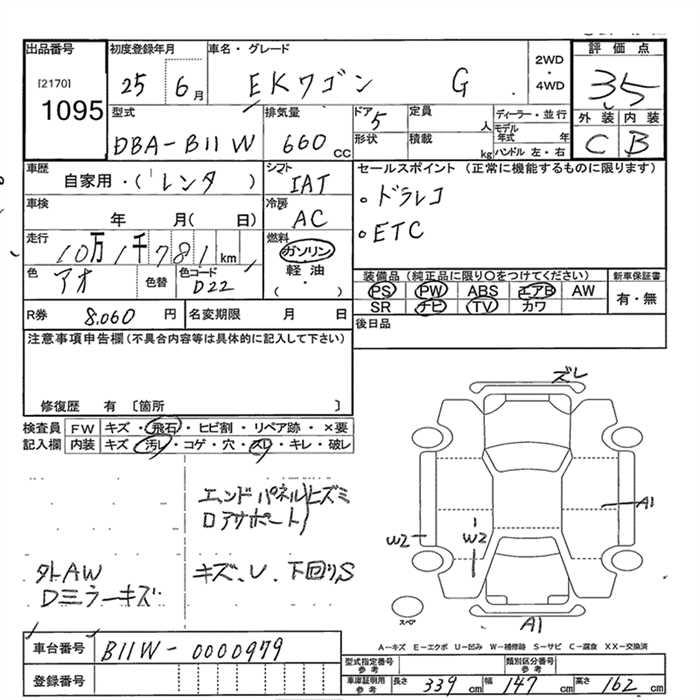 出品番号 初度登録年月 車名・グレード 2WD・4WD 評価点
[2170] 1095 25 6月 EKワゴン G 3.5
型式 排気量 ドア 定員 人 ディーラー・並行 外装 内装
DBA-B11W 660cc 5 形状 積載 kg モデル年式 年 ハンドル 左・右 C B
車歴 自家用・(レンタ) シフト IAT セールスポイント (正常に機能するものに限ります)
車検 年 月( 日) 冷房 AC ドラレコ
走行 10万1千781km 燃料 ガソリン ETC
色 アオ 色替 色コード D22 軽油 ( ・ ) 装備品 (純正品に限り○をつけてください) 新車保証書
PS PW ABS エアB AW 有・無
SR ナビ TV カワ
R券 8.060円 名変期限 月 日 後日品
注意事項申告欄 (不具合内容等は具体的に記入して下さい)
修復歴 有 [箇所 ]
ズレ
検査員 FW キズ・飛石・ヒビ割・リペア跡・×要
記入欄 内装 キズ・汚レ・コゲ・穴・スレ・キレ・破レ
エンドパネルヒズミ
ロアサポート
A1
W2 W2
外AW キズ、U、下回りS
Dミラーキズ
スペア
A1
A-キズ E-エクボ U-凹み W-補修跡 S-サビ C-腐食 XX-交換済
車台番号 B11W-0000979
型式指定番号 参考 類別区分番号 参考
登録番号 車庫証明用 参考 長さ 339cm 幅 147cm 高さ 162cm